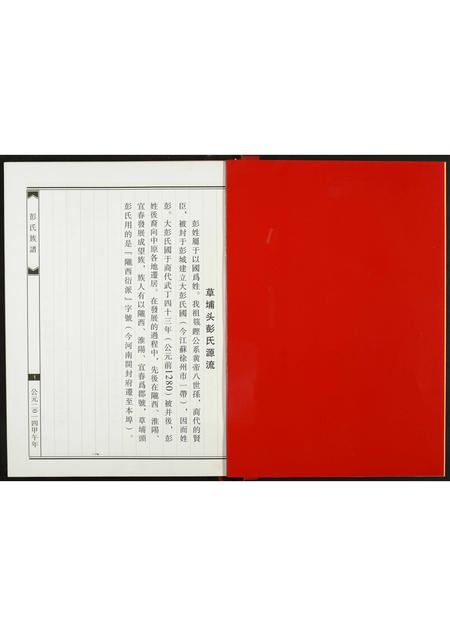 草埔头彭氏源流
彭姓屬于以國爲姓。我祖籛鏗公系黄帝八世孫，商代的賢
臣，被封于彭城建立大彭氏國（今江蘇徐州市一帶），因而姓
彭。大彭氏國于商代武丁四十三年（公元前1280）被并後，彭
姓後裔向中原各地遷居。在發展的過程中，先後在隴西、淮陽、
宜春發展成望族，族人有以隴西、淮陽、宜春爲郡號，草埔頭
彭氏用的是「隴西衍派」字號（今河南開封府遷至本埠）。
彭氏族譜
1
公元二〇一四甲午年